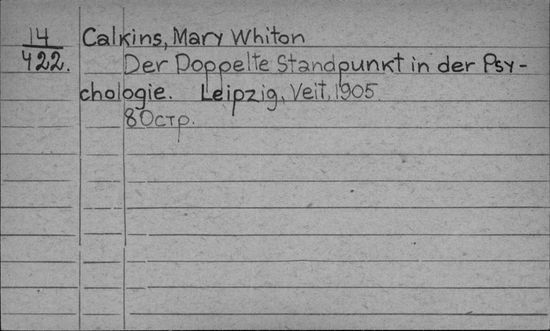 14 Calkins, Mary Whiton
422. Der Doppelte Standpunkt in der Psy-
chologie. Leipzig, Veit, 1905.
80стр.